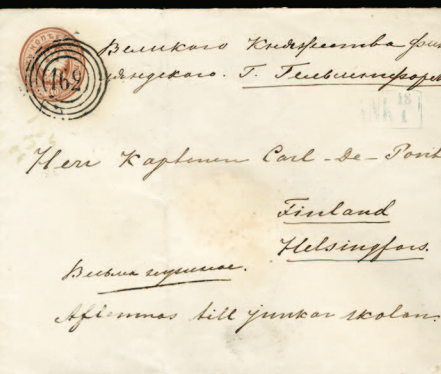 162
Великого Княжества Фин
ляндского. Г. Гельсингфорс
18
1
Herr Kaptenen Carl-De-Pont
Finland
Helsingfors.
Весьма нужное.
Aflemnas till junkar skolan.